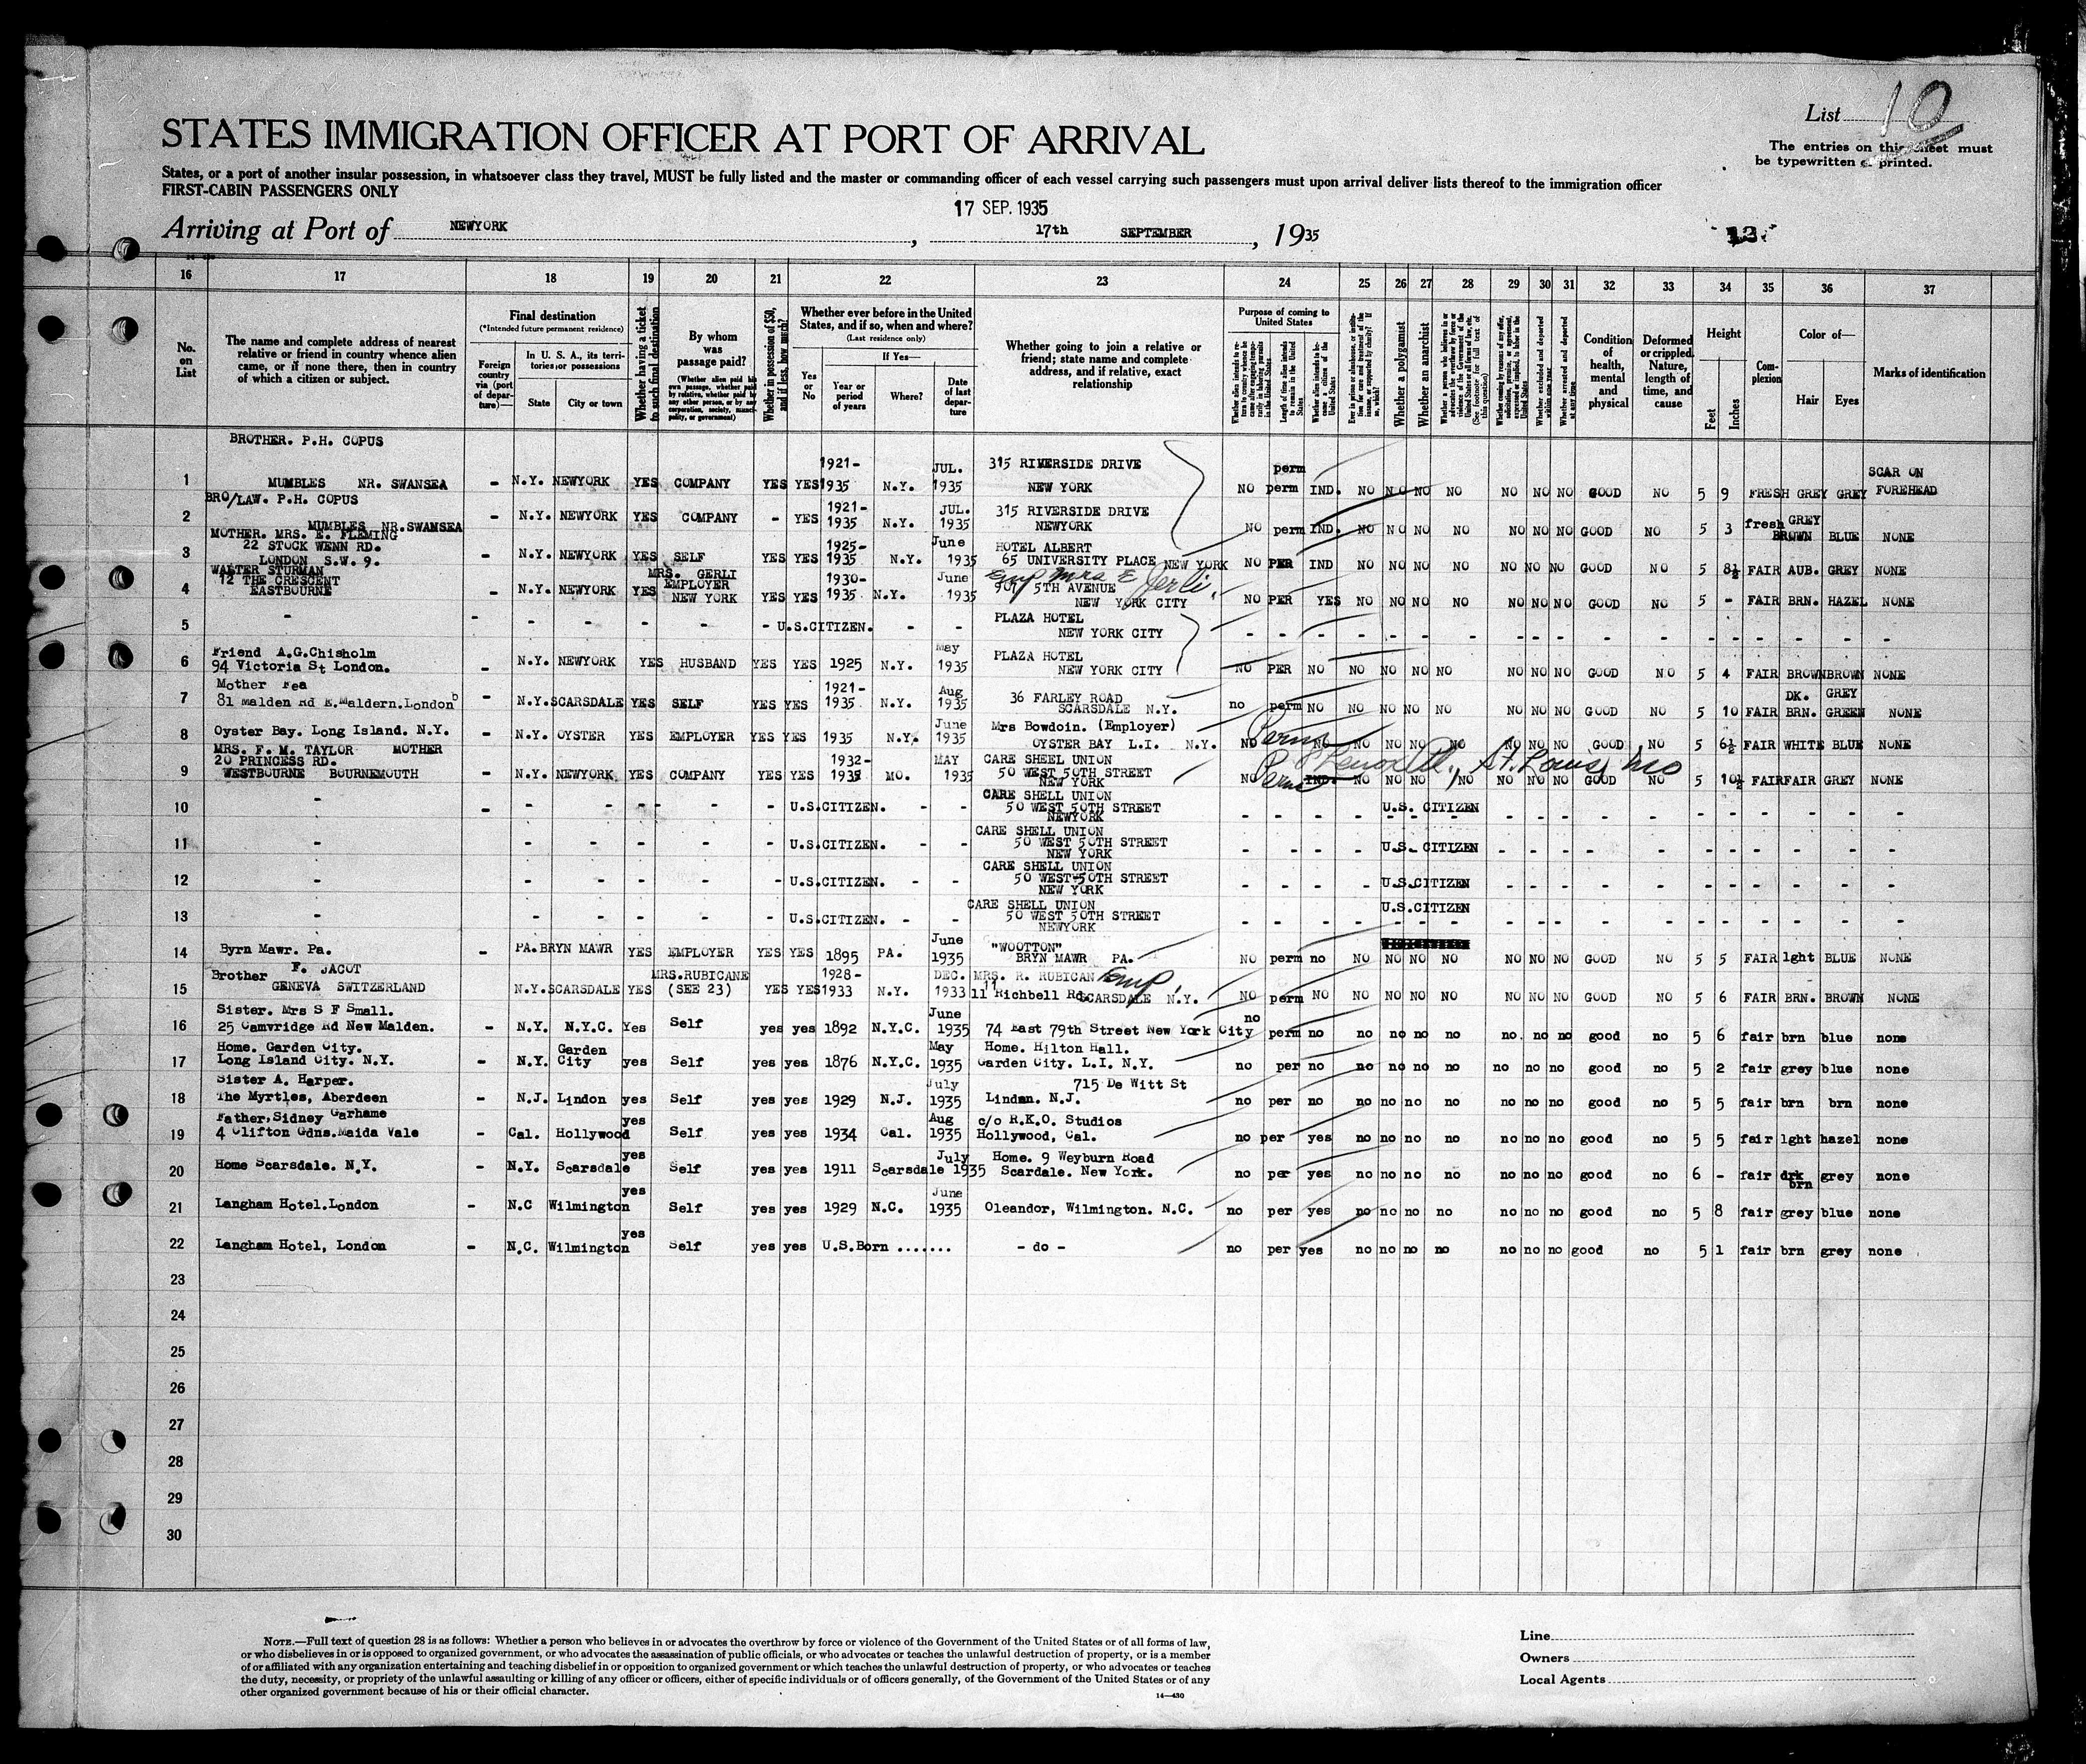 List 10
STATES IMMIGRATION OFFICER AT PORT OF ARRIVAL
The entries on this sheet must
be typewritten or printed.
States, or a port of another insular possession, in whatsoever class they travel, MUST be fully listed and the master or commanding officer of each vessel carrying such passengers must upon arrival deliver lists thereof to the immigration officer
FIRST-CABIN PASSENGERS ONLY
17 SEP. 1935
Arriving at Port of NEWYORK, 17th SEPTEMBER, 1935
12.
16 17 18 19 20 21 22 23 24 25 26 27 28 29 30 31 32 33 34 35 36 37
No. on List
The name and complete address of nearest
relative or friend in country whence alien
came, or if none there, then in country
of which a citizen or subject.
Final destination
(*Intended future permanent residence)
Foreign country via (port of departure)—
In U. S. A., its territories, or possessions
State City or town
Whether having a ticket to such final destination
By whom was passage paid?
(Whether alien paid his own passage, whether paid by relative, whether paid by any other person, or by any corporation, society, municipality, or government)
Whether in possession of $50, and if less, how much?
Whether ever before in the United
States, and if so, when and where?
(Last residence only)
Yes or No
If Yes—
Year or period of years Where? Date of last departure
Whether going to join a relative or
friend; state name and complete
address, and if relative, exact
relationship
Purpose of coming to United States
Length of time alien intends to remain in the United States
Whether alien intends to become a citizen of the United States
Whether a polygamist
Whether an anarchist
Whether excluded and deported within one year
Whether arrested and deported at any time
Condition of health, mental and physical
Deformed or crippled. Nature, length of time, and cause
Height
Feet Inches
Complexion
Color of—
Hair Eyes
Marks of identification
BROTHER. P.H. COPUS
1 MUMBLES NR. SWANSEA - N.Y. NEWYORK YES COMPANY YES YES 1921-1935 N.Y. JUL. 1935 315 RIVERSIDE DRIVE NEW YORK NO perm perm IND. NO NO NO NO NO NO NO GOOD NO 5 9 FRESH GREY GREY SCAR ON FOREHEAD
BRO/LAW. P.H. COPUS
2 MUMBLES NR.SWANSEA - N.Y. NEWYORK YES COMPANY - YES 1921-1935 N.Y. JUL. 1935 315 RIVERSIDE DRIVE NEWYORK NO perm IND. NO NO NO NO NO NO NO GOOD NO 5 3 fresh GREY BROWN BLUE NONE
MOTHER. MRS. E. FLEMING
22 STOCK WENN RD.
3 LONDON S.W. 9. - N.Y. NEWYORK YES SELF YES YES 1925-1935 N.Y. June 1935 HOTEL ALBERT 65 UNIVERSITY PLACE NEW YORK NO PER IND NO NO NO NO NO NO NO GOOD NO 5 8½ FAIR AUB. GREY NONE
WALTER STURMAN
12 THE CRESCENT
4 EASTBOURNE - N.Y. NEWYORK YES MRS. GERLI EMPLOYER NEW YORK YES YES 1930-1935 N.Y. June 1935 Emp Mrs E Gerli. 5TH AVENUE NEW YORK CITY NO PER YES NO NO NO NO NO NO NO GOOD NO 5 - FAIR BRN. HAZEL NONE
5 - - - - - - - U.S.CITIZEN. - - PLAZA HOTEL NEW YORK CITY - - - - - - - - - - - - - - - - - -
Friend A.G.Chisholm
6 94 Victoria St London. - N.Y. NEWYORK YES HUSBAND YES YES 1925 N.Y. May 1935 PLAZA HOTEL NEW YORK CITY NO PER NO NO NO NO NO NO NO NO GOOD NO 5 4 FAIR BROWN BROWN NONE
Mother Fea
7 81 Malden Rd E.Maldern.London - N.Y. SCARSDALE YES SELF YES YES 1921-1935 N.Y. Aug 1935 36 FARLEY ROAD SCARSDALE N.Y. no perm NO NO NO NO NO NO NO NO GOOD NO 5 10 FAIR DK. BRN. GREY GREEN NONE
8 Oyster Bay. Long Island. N.Y. - N.Y. OYSTER YES EMPLOYER YES YES 1935 N.Y. June 1935 Mrs Bowdoin. (Employer) OYSTER BAY L.I. N.Y. NO Perm NO NO NO NO NO NO NO NO GOOD NO 5 6½ FAIR WHITE BLUE NONE
MRS. F. M. TAYLOR MOTHER
20 PRINCESS RD.
9 WESTBOURNE BOURNEMOUTH - N.Y. NEWYORK YES COMPANY YES YES 1932-1935 MO. MAY 1935 CARE SHEEL UNION 50 WEST 50TH STREET NEW YORK Lenox Pl., St. Louis, Mo NO Perm IND. NO NO NO NO NO NO NO GOOD NO 5 10½ FAIR FAIR GREY NONE
10 - - - - - - - U.S.CITIZEN. - - CARE SHELL UNION 50 WEST 50TH STREET NEWYORK U.S. CITIZEN
11 - - - - - - U.S.CITIZEN. - - CARE SHELL UNION 50 WEST 50TH STREET NEW YORK U.S. CITIZEN
12 - - - - - - U.S.CITIZEN. - - CARE SHELL UNION 50 WEST-50TH STREET NEW YORK U.S.CITIZEN
13 - - - - - - U.S.CITIZEN. - - CARE SHELL UNION 50 WEST 50TH STREET NEWYORK U.S.CITIZEN
14 Byrn Mawr. Pa. - PA. BRYN MAWR YES EMPLOYER YES YES 1895 PA. June 1935 "WOOTTON" BRYN MAWR PA. NO perm no NO NO NO NO NO NO NO GOOD NO 5 5 FAIR lght BLUE NONE
15 Brother F. JACOT GENEVA SWITZERLAND N.Y. SCARSDALE YES MRS.RUBICANE (SEE 23) YES YES 1928-1933 N.Y. DEC. 1933 MRS. R. RUBICAN Emp. 11 Richbell Rd SCARSDALE N.Y. NO perm NO NO NO NO NO NO NO NO GOOD NO 5 6 FAIR BRN. BROWN NONE
Sister. Mrs S F Small.
16 25 Camvridge Rd New Malden. - N.Y. N.Y.C. Yes Self yes yes 1892 N.Y.C. June 1935 74 East 79th Street New York City no perm no no no no no no no no good no 5 6 fair brn blue none
Home. Garden City.
17 Long Island City. N.Y. - N.Y. Garden City yes Self yes yes 1876 N.Y.C. May 1935 Home. Hilton Hall. Garden City. L.I. N.Y. no per no no no no no no no no good no 5 2 fair grey blue none
Sister A. Harper.
18 The Myrtles, Aberdeen - N.J. Lindon yes Self yes yes 1929 N.J. July 1935 715 De Witt St Linden. N.J. no per no no no no no no no no good no 5 5 fair brn brn none
Father, Sidney Garhame
19 4 Clifton Gdns.Maida Vale - Cal. Hollywood yes Self yes yes 1934 Cal. Aug 1935 c/o R.K.O. Studios Hollywood, Cal. no per yes no no no no no no no good no 5 5 fair lght hazel none
20 Home Scarsdale. N.Y. - N.Y. Scarsdale yes Self yes yes 1911 Scarsdale July 1935 Home. 9 Weyburn Road Scardale. New York. no per yes no no no no no no no good no 6 - fair drk brn grey none
21 Langham Hotel.London - N.C Wilmington yes Self yes yes 1929 N.C. June 1935 Oleandor, Wilmington. N.C. no per yes no no no no no no no good no 5 8 fair grey blue none
22 Langham Hotel, London - N.C. Wilmington yes Self yes yes U.S.Born ....... - do - no per yes no no no no no no no good no 5 1 fair brn grey none
23
24
25
26
27
28
29
30
NOTE.—Full text of question 28 is as follows: Whether a person who believes in or advocates the overthrow by force or violence of the Government of the United States or of all forms of law,
or who disbelieves in or is opposed to organized government, or who advocates the assassination of public officials, or who advocates or teaches the unlawful destruction of property, or is a member
of or affiliated with any organization entertaining and teaching disbelief in or opposition to organized government or which teaches the unlawful destruction of property, or who advocates or teaches
the duty, necessity, or propriety of the unlawful assaulting or killing of any officer or officers, either of specific individuals or of officers generally, of the Government of the United States or of any
other organized government because of his or their official character.
14—430
Line
Owners
Local Agents